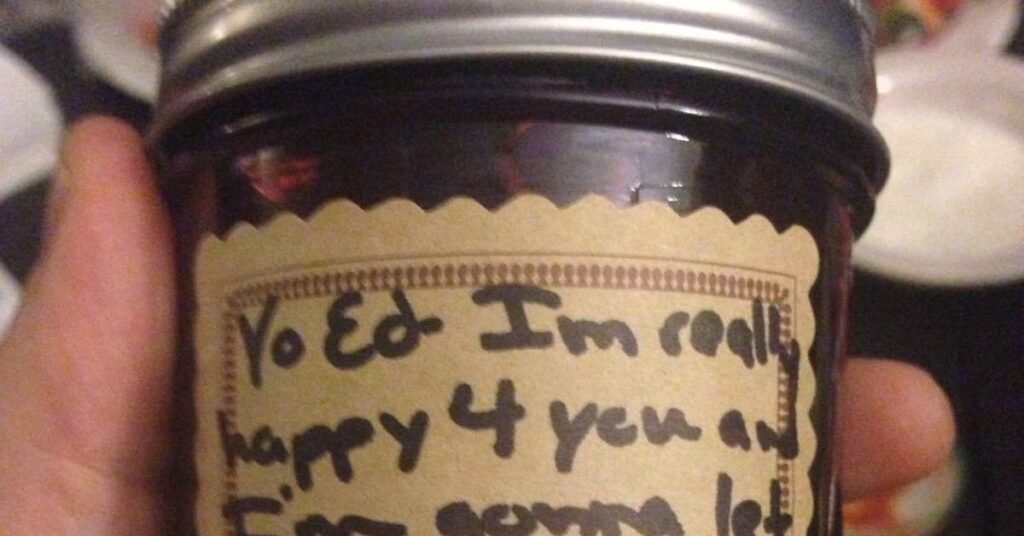 Yo Ed I'm really
happy 4 you and
I'm gonna let